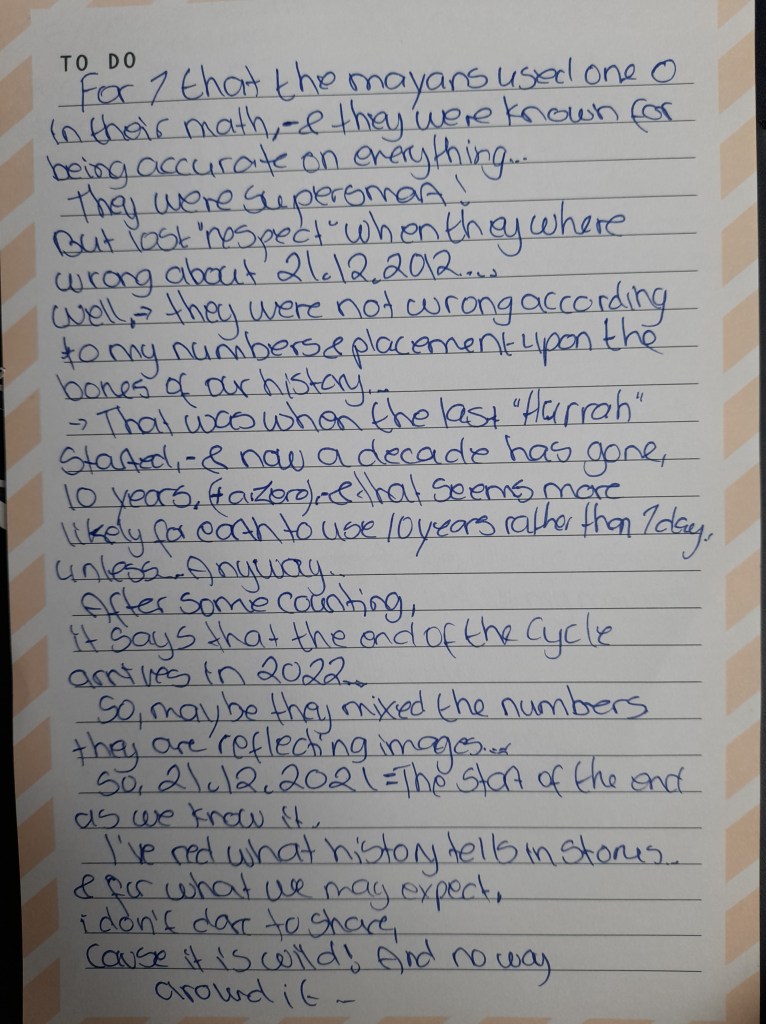 TO DO
For 1 that the mayans used one 0
in their math,-& they were known for
being accurate on everything...
They were supersmart!
But lost "respect" when they where
wrong about 21.12.2012....
Well,→ they were not wrong according
to my numbers & placement upon the
bones of our history...
→ That was when the last "Hurrah"
started,-& now a decade has gone,
10 years, (+a zero),-& that seems more
likely for earth to use 10 years rather than 1 day,
unless.. Anyway..
After some counting,
it says that the end of the cycle
arrives in 2022...
So, maybe they mixed the numbers
they are reflecting images...
So, 21.12.2021 = The start of the end
as we know it.
I've red what history tells in stones..
& for what we may expect,
i don't dare to share,
Cause it is wild! And no way
around it -